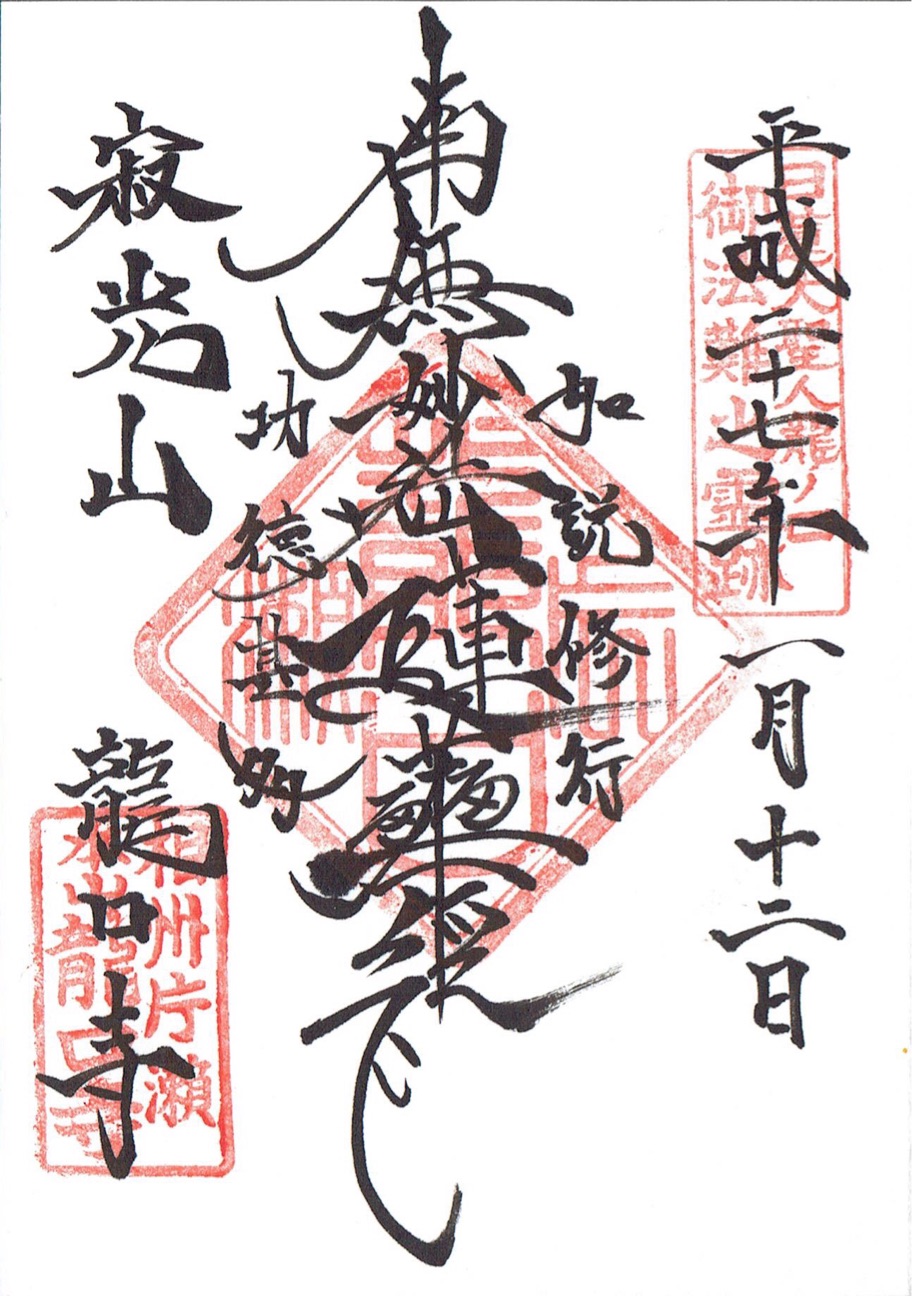 平成二十七年一月十二日
日蓮大聖人龍ノ口
御法難之霊跡
如説修行
南無妙法蓮華経
功徳甚多
寂光山
龍口寺
相州片瀬
龍口寺